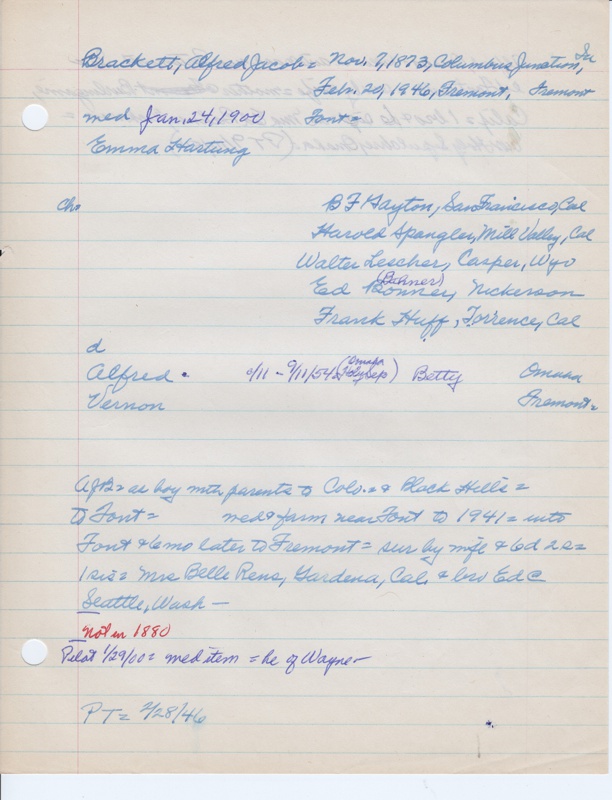 Brackett, Alfred Jacob = Nov. 7, 1873, Columbus Junction, Ia
Feb. 20, 1946, Fremont, Fremont
med Jan. 24, 1900 Font =
Emma Hartung
Chn B F Gayton, San Francisco, Cal
Harold Spangler, Mill Valley, Cal
Walter Lescher, Casper, Wyo
(Bahner)
Ed Bonney, Nickerson
Frank Huff, Torrence, Cal
d
Alfred • 9/11/54 (Omaha Holy Sep) Betty Omaha
Vernon Fremont =
AJB = as boy with parents to Colo. = & Black Hills =
to Font = med & farm near Font to 1941 = into
Font & 6 mo later to Fremont = sur by wife & 6d 2s =
1 sis = Mrs Belle Rens, Gardena, Cal. & bro Ed C
Seattle, Wash —
Not in 1880
Pilot 1/29/00 = med item = he of Wayne —
PT = 2/28/46